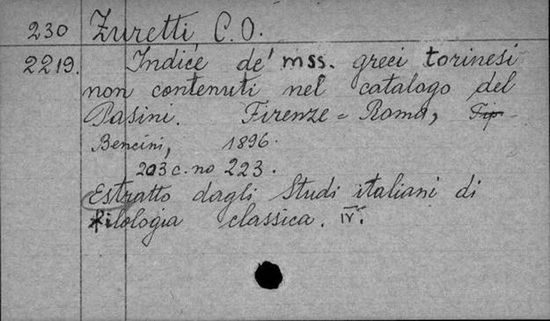 230 Zuretti C.O.
2219. Indice de' mss. greci torinesi
non contenuti nel catalogo del
Pasini. Firenze-Roma, Tip
Bencini, 1896.
203 c. no 223.
Estratto dagli Studi italiani di
filologia classica. IV.